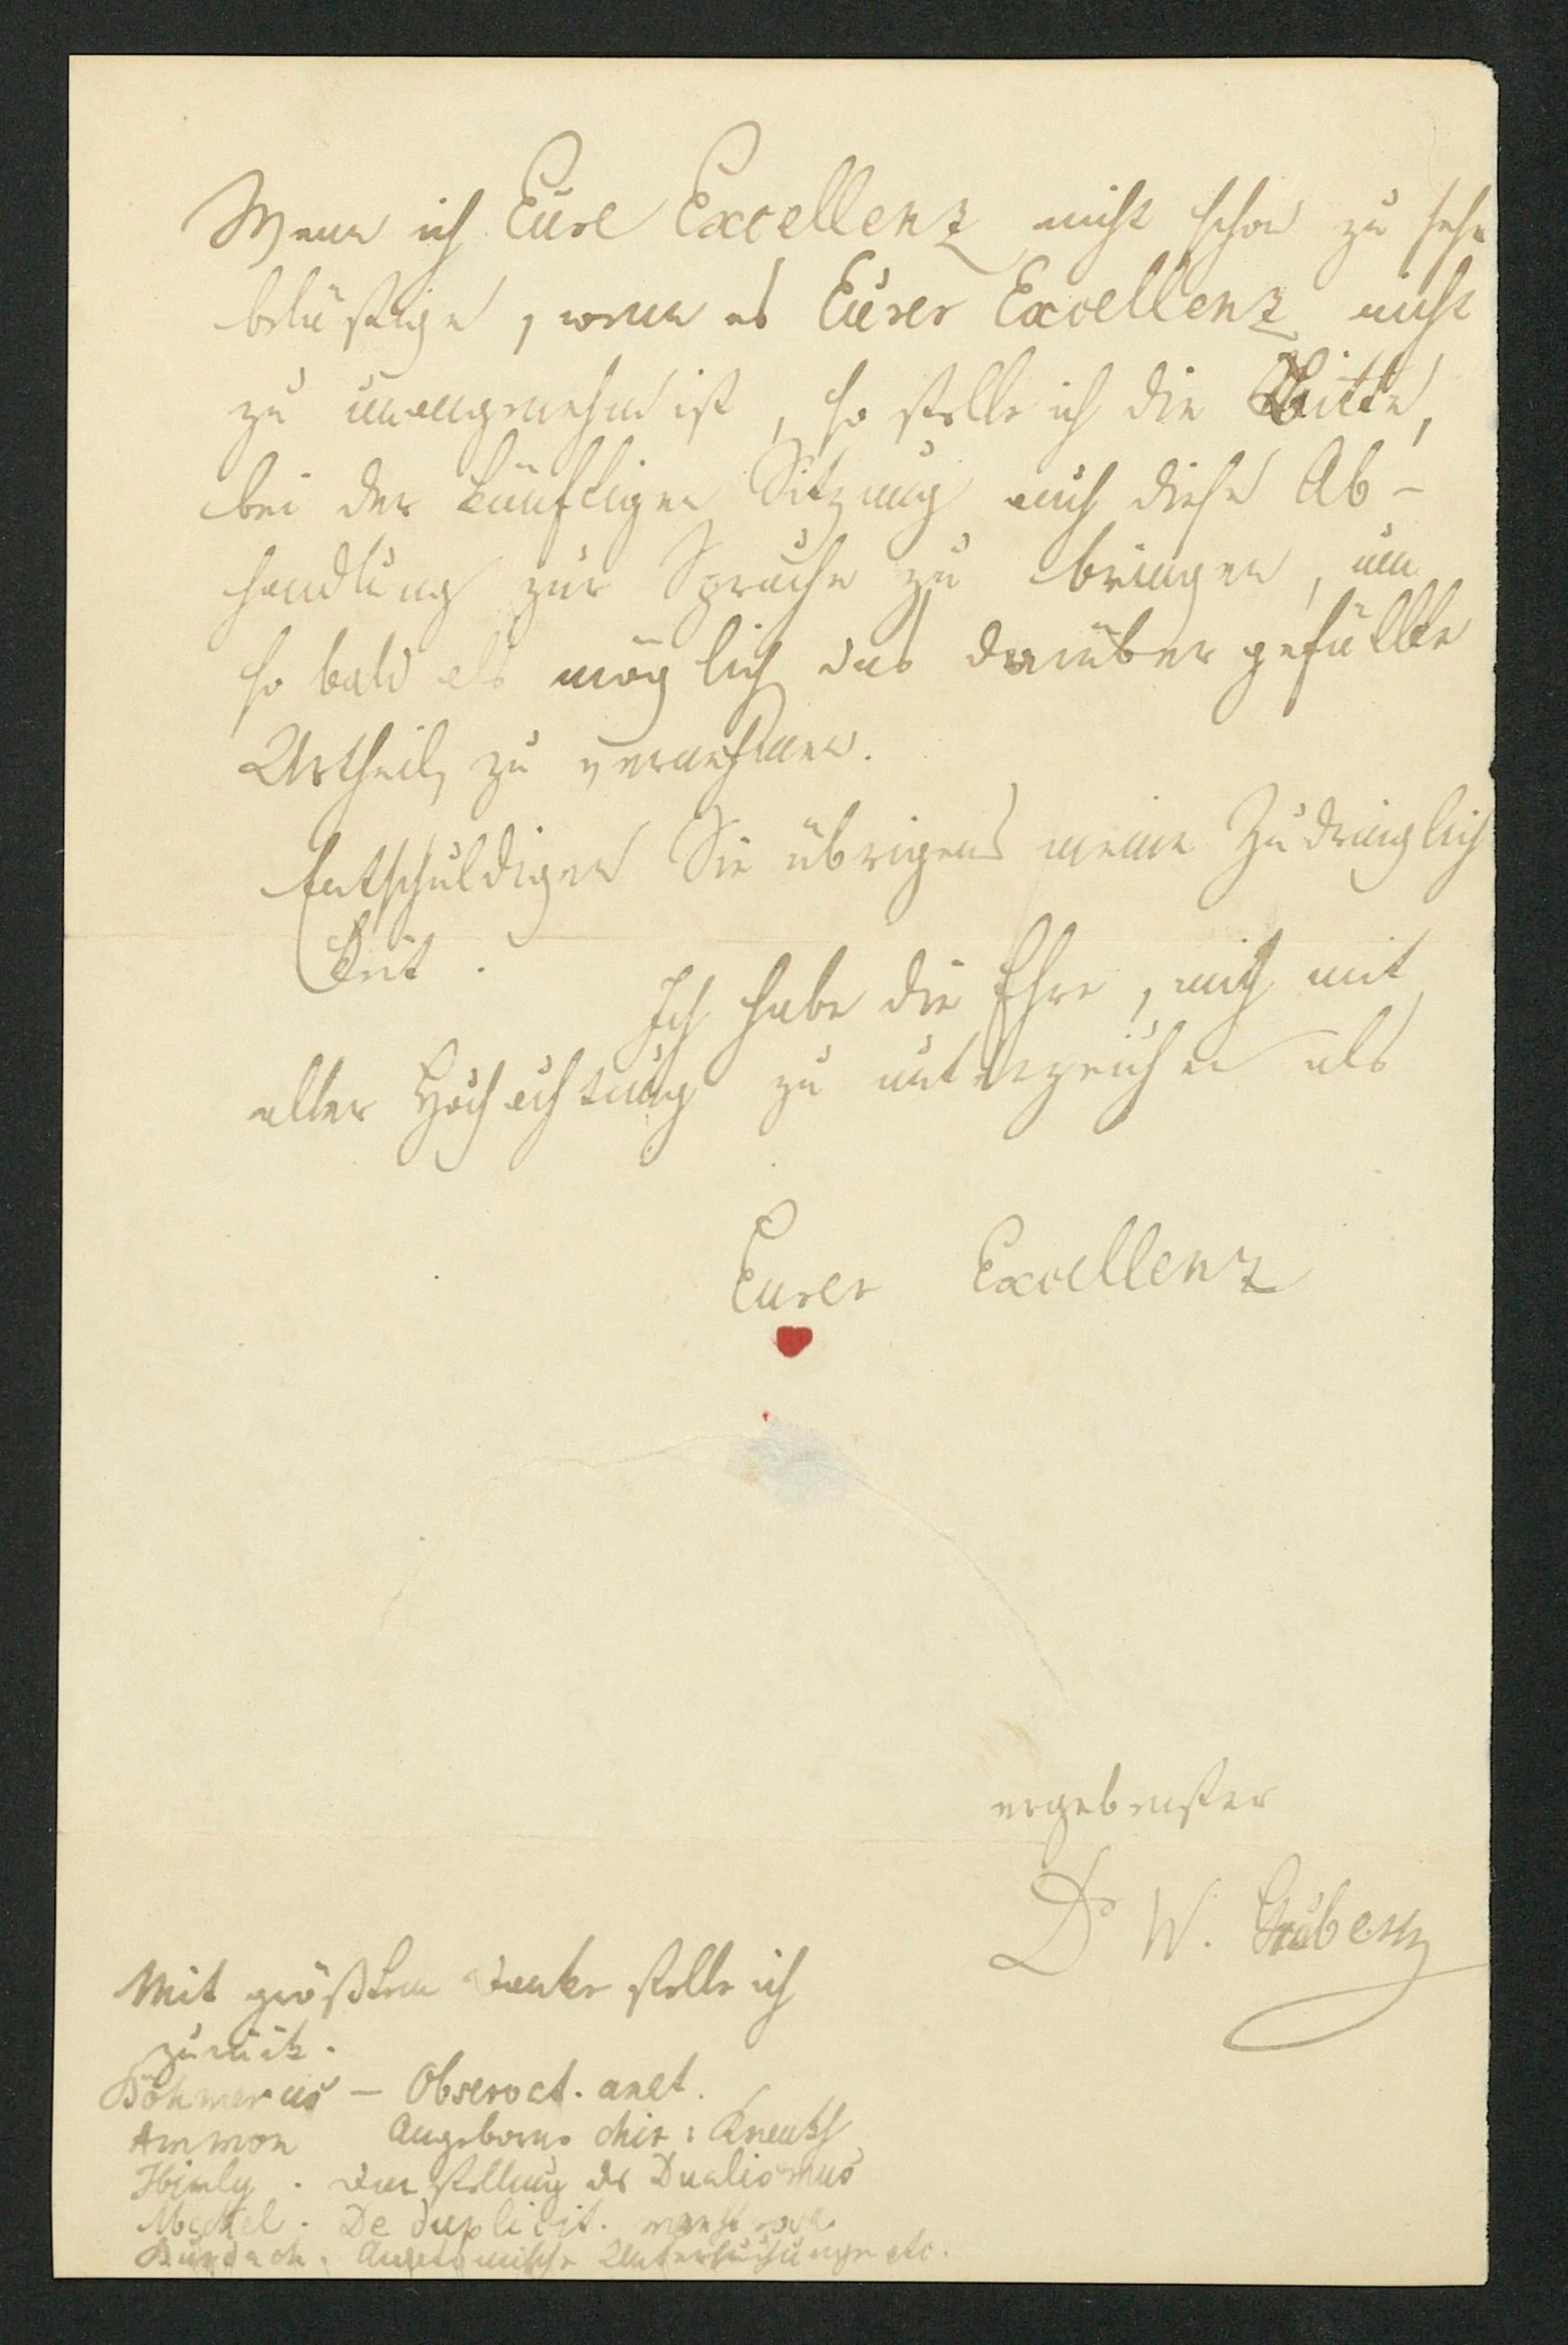 Wenn ich Eure Excellenz nicht schon zu sehr
belästige, wenn es Eurer Excellenz nicht
zu unangenehm ist, so stelle ich die Bitte,
bei der künftigen Sitzung auch diese Ab-
handlung zur Sprache zu bringen, um
so bald als möglich das darüber gefällte
Urtheil zu vernehmen.
Entschuldigen Sie übrigens meine Zudringlich
keit.
Ich habe die Ehre, mich mit
aller Hochachtung zu unterzeichnen als
Eurer Excellenz
ergebenster
Dr W. Gruber
Mit größtem Danke stelle ich
zurück.
Böhmerus – Observat. anat.
Ammon Angeborne chir: Krankh
Himly. Darstellung des Dualismus
Meckel. De duplicit. monstrosa
Burdach. Anatomische Untersuchungen etc.